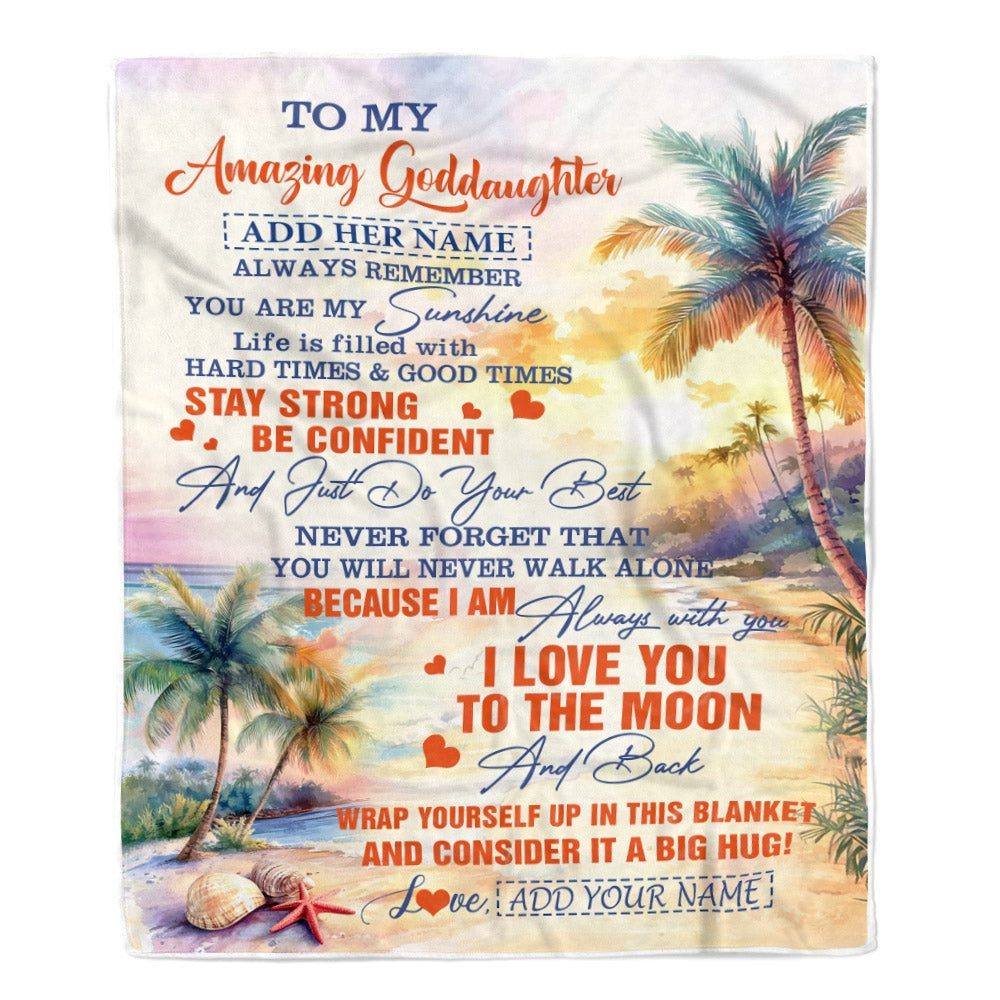 TO MY
Amazing Goddaughter
ADD HER NAME
ALWAYS REMEMBER
YOU ARE MY Sunshine
Life is filled with
HARD TIMES & GOOD TIMES
STAY STRONG
BE CONFIDENT
And Just Do Your Best
NEVER FORGET THAT
YOU WILL NEVER WALK ALONE
BECAUSE I AM Always with you
I LOVE YOU
TO THE MOON
And Back
WRAP YOURSELF UP IN THIS BLANKET
AND CONSIDER IT A BIG HUG!
Love, ADD YOUR NAME